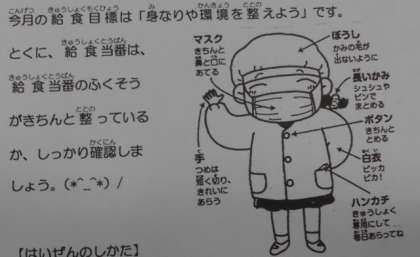 今月の給食目標は「身なりや環境を整えよう」です。
とくに、給食当番は、
給食当番のふくそう
がきちんと整っている
か、しっかり確認しま
しょう。(*^_^*) /
【はいぜんのしかた】
マスク
きちんと
鼻と口に
あてる
ぼうし
かみの毛が
出ないように
長いかみ
シュシュや
ピンで
まとめる
ボタン
きちんと
とめる
手
つめは
短く切り、
きれいに
あらう
白衣
ピッカ
ピカ！
ハンカチ
きゅうしょく
専用にして
毎日あらってね